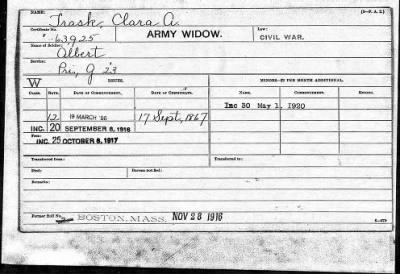 NAME: Trask, Clara A. (3-P. A. 2.)
Certificate No. 63925 ARMY WIDOW. Law: CIVIL WAR.
Name of Soldier: Albert
Service: Pri, G 23
W RATES. MINORS—$2 PER MONTH ADDITIONAL.
CLASS. RATE. DATE OF COMMENCEMENT. DATE OF CERTIFICATE. NAME. COMMENCEMENT. EXPIRES.
Inc 30 May 1, 1920
12 19 MARCH '86 17 Sept, 1867
INC. 20 SEPTEMBER 8, 1916
INC. 25 OCTOBER 6, 1917
Transferred from: Transferred to:
Died: Bureau notified:
Remarks:
Former Roll No. BOSTON, MASS. NOV 28 1916